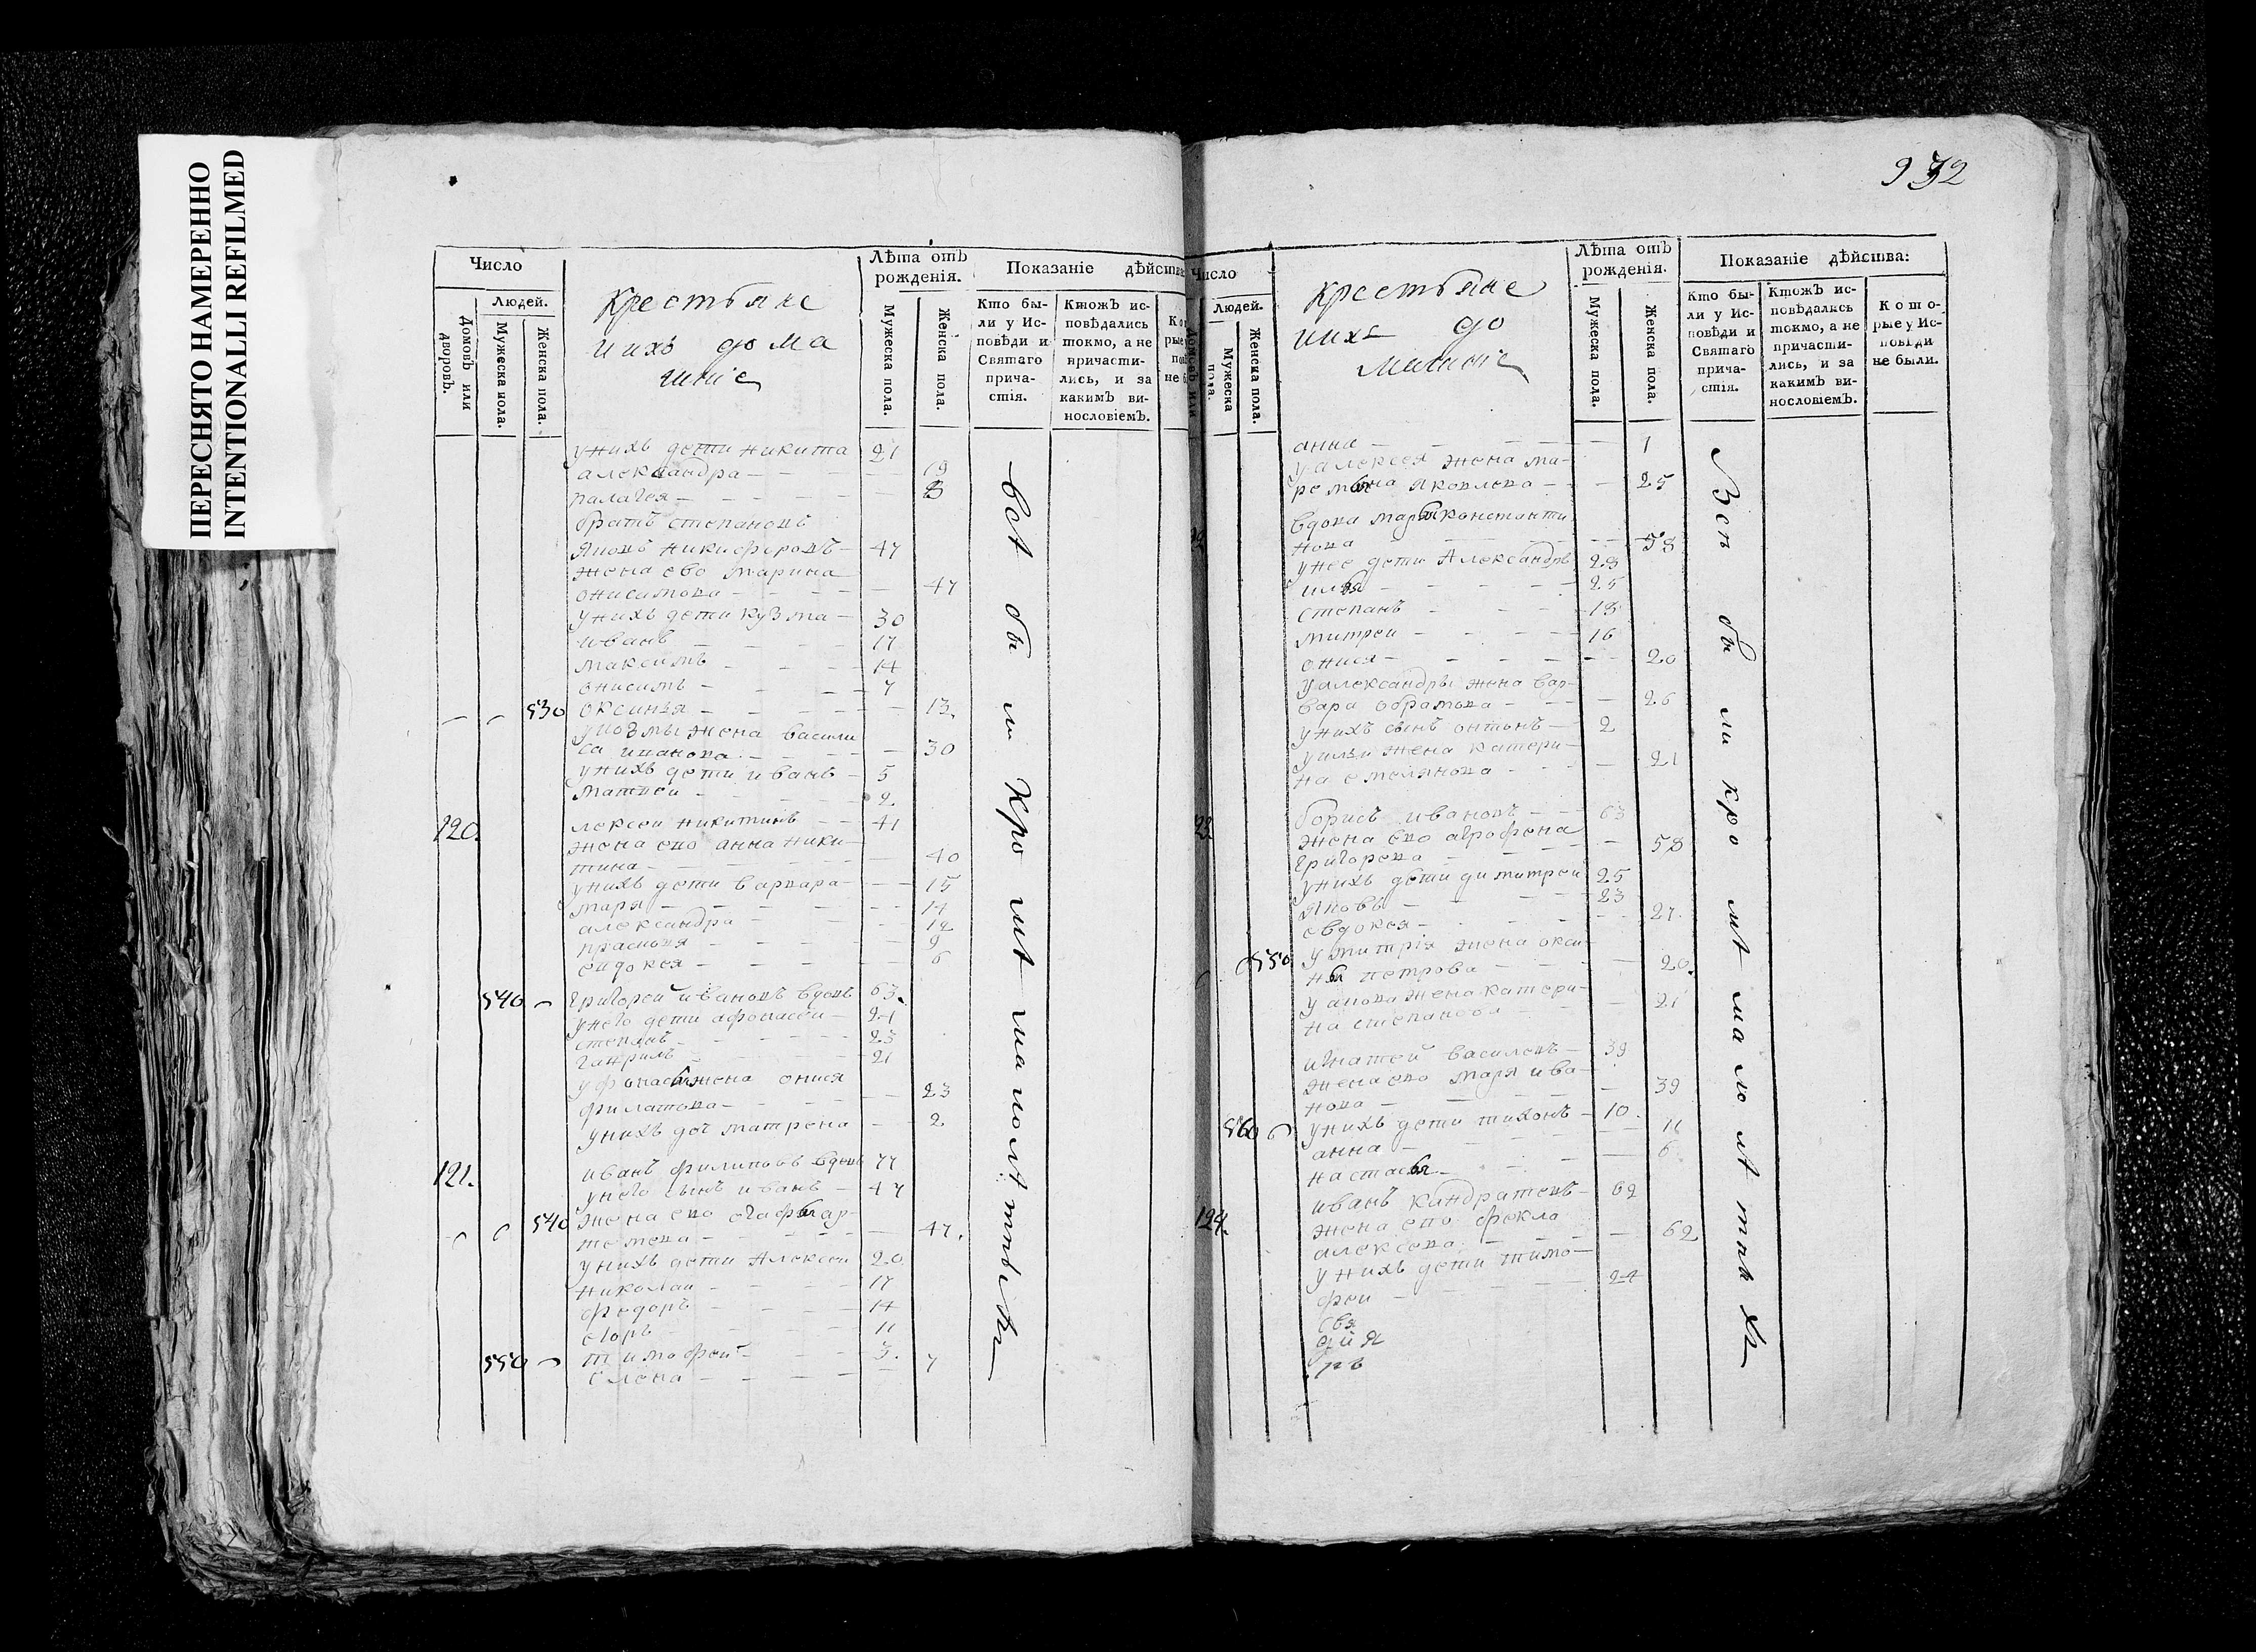 ПЕРЕСНЯТО НАМЕРЕННО
INTENTIONALLI REFILMED
Число
Людей.
Домовъ или дворовъ.
Мужеска пола.
Женска пола.
Крестьяне
иихъ дома
шніе
Лѣта отъ
рожденія.
Мужеска пола.
Женска пола.
Показаніе дѣйства:
Кто бы-
ли у Ис-
повѣди и
Святаго
прича-
стія.
Ктожъ ис-
повѣдались
токмо, а не
причасти-
лись, и за
какимъ ви-
нословіемъ.
унихъ дети никита 21
александра 19
палагея 8
братъ степановъ
Яковъ никифоровъ 47
жена ево марина
онисимова 47
унихъ дети кузма 30
иванъ 17
максимъ 14
онисимъ 7
530 оксинья 13.
укозмы жена васили
са иванова 30
унихъ дети иванъ 5
матвеи 2
120. лексеи никитинъ 41
жена ево анна ники-
тина 40
унихъ дети варвара 15
маря 14
александра 12
прасковя 9
евдокея 6
540 григореи ивановъ вдовъ 63.
унего дети афонасеи 24
степанъ 23
гаврилъ 21
уфонасья жена онися
филатова 23
унихъ доч матрена 2
121. иванъ филиповъ вдовъ 77
унего сынъ иванъ 47
540 жена ево агафья ар-
темева 47.
унихъ дети Алексеи 20
николаи 17
федоръ 14
егоръ 11
550 тимофеи 3.
елена 7
всѣ были кромѣ малолѣтныхъ
932
Число
Людей.
Мужеска пола.
Женска пола.
Крестьяне
иихъ до
машніе
Лѣта отъ
рожденія.
Мужеска пола.
Женска пола.
Показаніе дѣйства:
Кто бы-
ли у Ис-
повѣди и
Святаго
прича-
стія.
Ктожъ ис-
повѣдались
токмо, а не
причасти-
лись, и за
какимъ ви-
нословіемъ.
Кото-
рые у Ис-
повѣди
не были.
анна 1
уалексея жена ма-
ремьяна яковлева 25
вдова марья константи
нова 58
унее дети Александръ 28
илья 25
степанъ 18
митреи 16
онися 20
уалександры жена вар-
вара абрамова 26
унихъ сынъ онтонъ 2
уильи жена катери-
на емелянова 21
борисъ ивановъ 63
жена ево агрофена
григорева 58
унихъ дети димитреи 25
Яковъ 23
евдокея 27.
550 умитрія жена окси-
нья петрова 20.
уякова жена катери-
на степанова 21
игнатеи василевъ 39
жена ево маря ива-
нова 39
560 унихъ дети тихонъ 10.
анна 11
настасья 6
124. иванъ кандратевъ 62
жена ево фекла
алексева 62
унихъ дети тимо-
феи 24
всѣ были кромѣ малолѣтныхъ